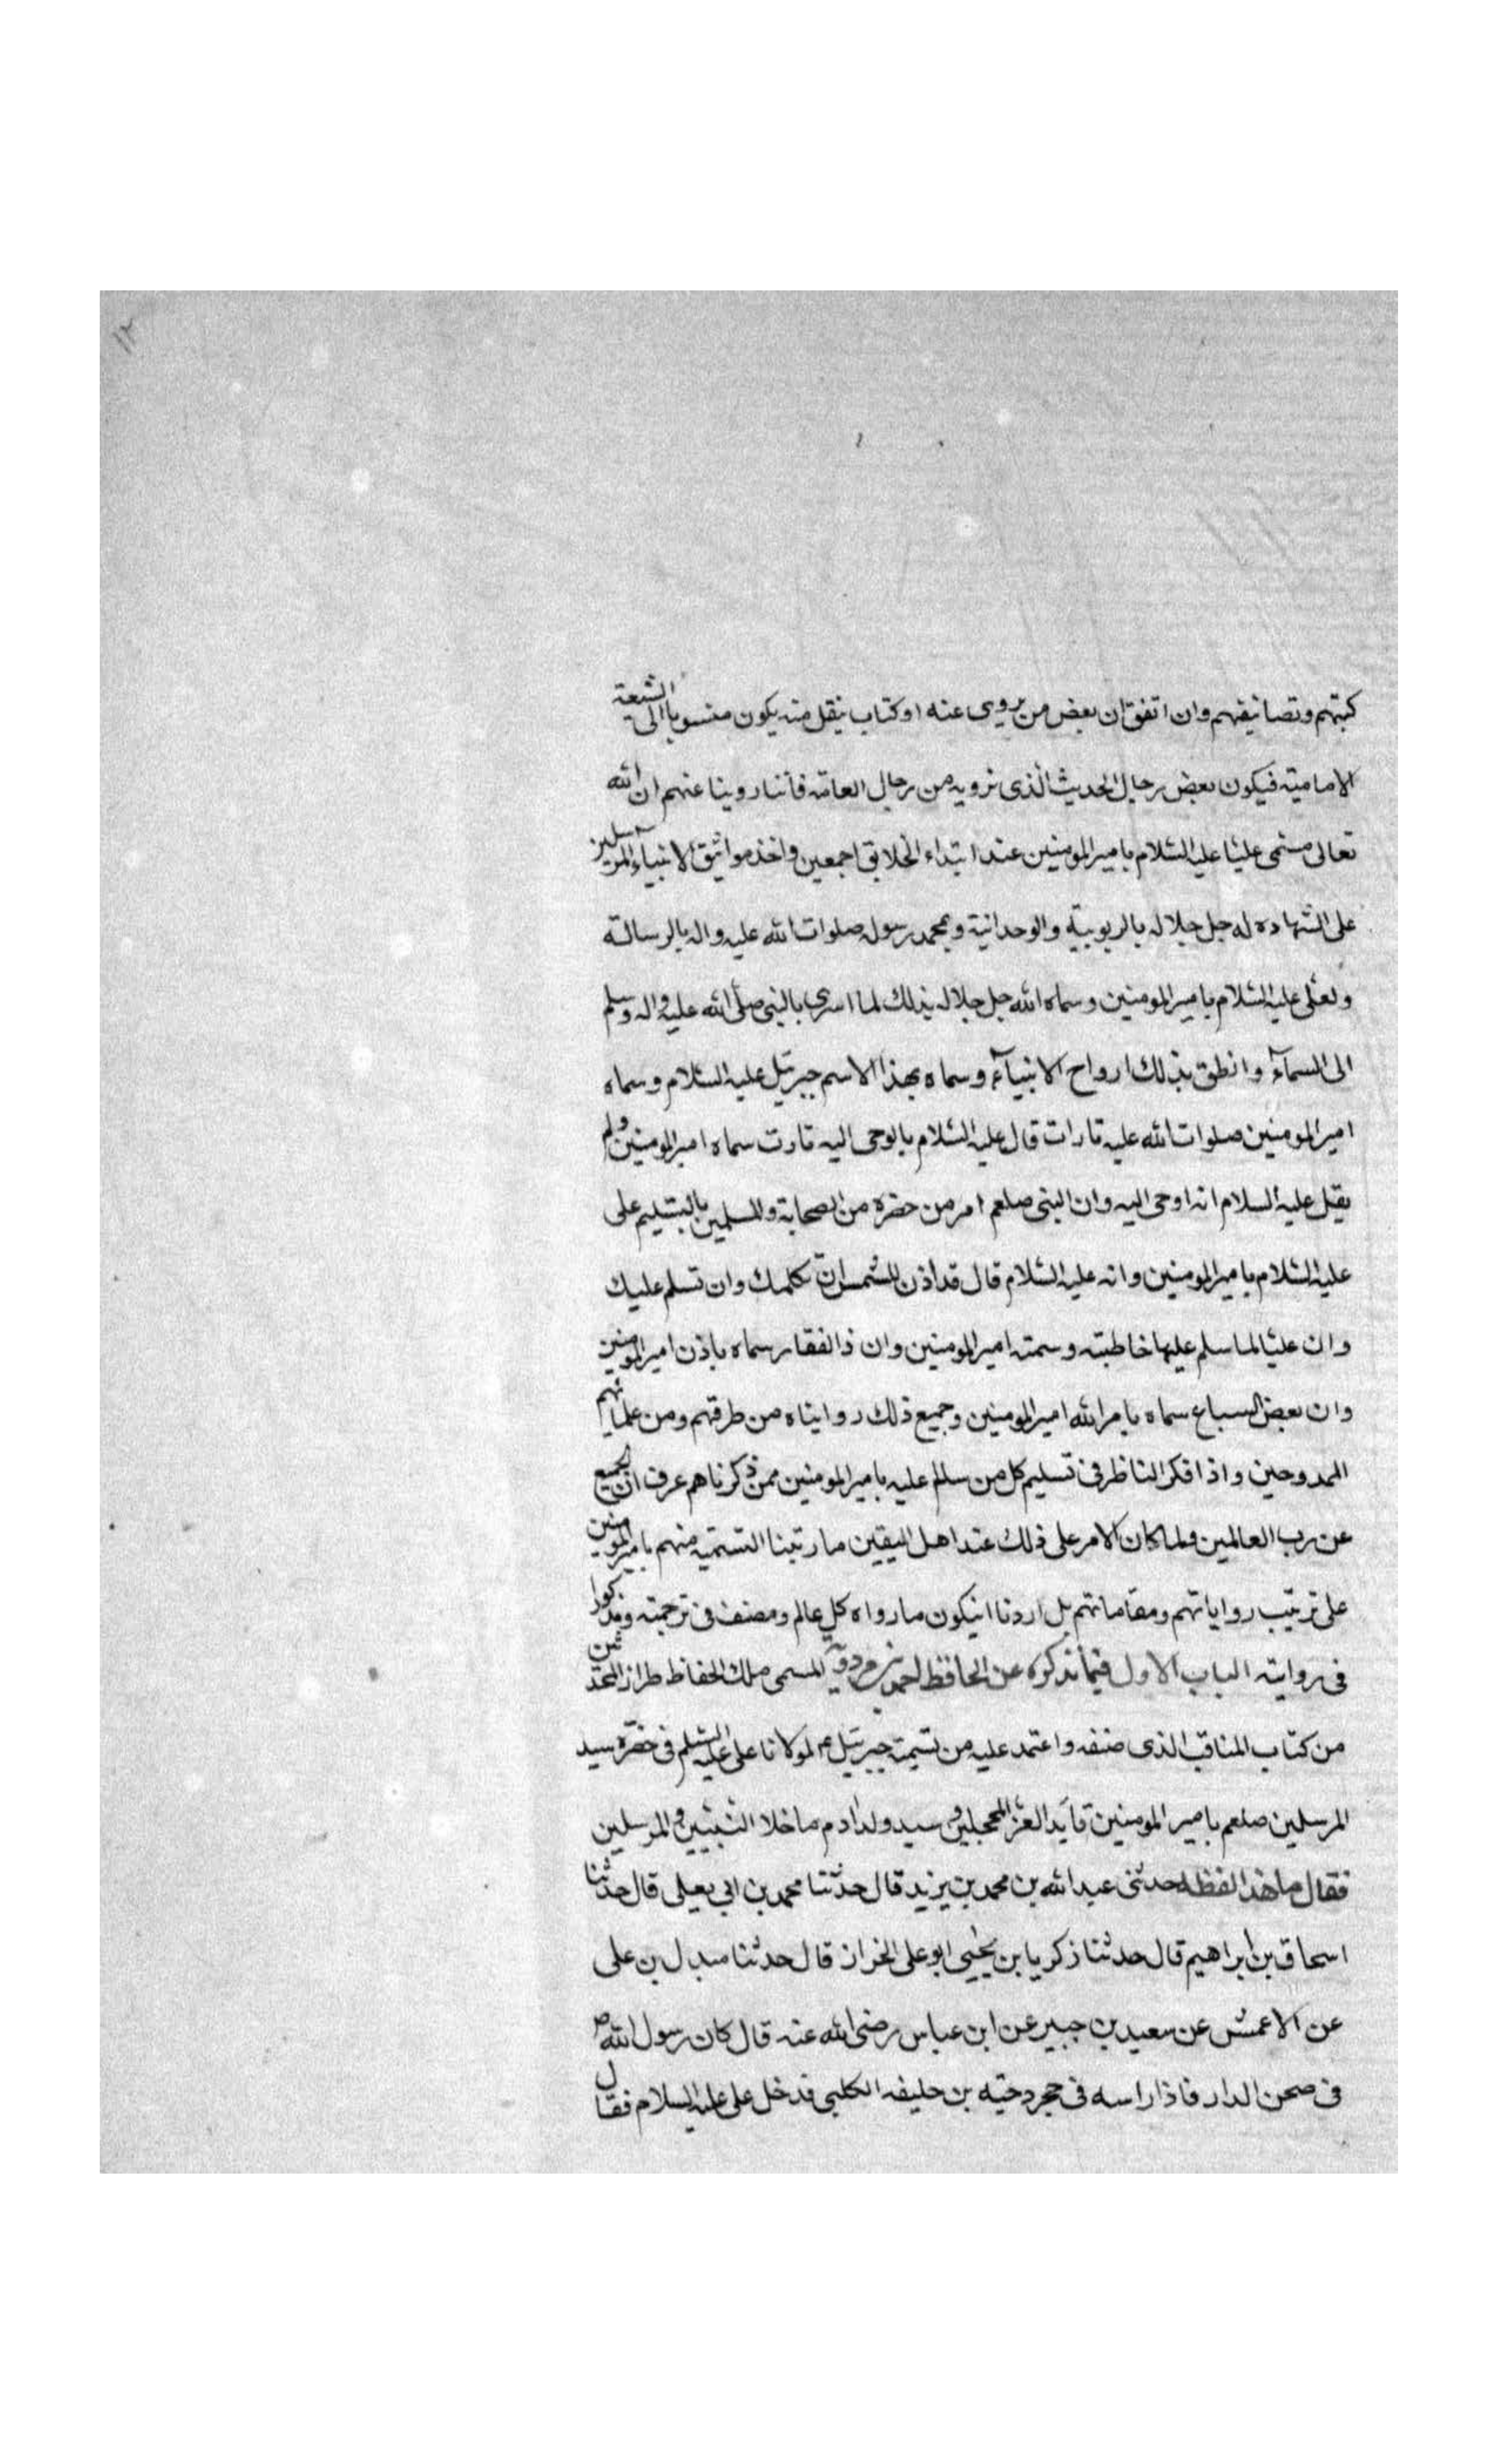 ١٢
كتبهم وتصانيفهم وان اتفق ان بعض من يروى عنه او كتاب ينقل منه يكون منسوبا الى الشيعة
الامامية فيكون بعض رجال الحديث الذى نرويه من رجال العامة فاننا روينا عنهم ان الله
تعالى سمى عليا عليه السلام بامير المومنين عند ابتداء الخلايق اجمعين واخذ مواثيق الانبياء والمرسلين
على الشهاده له جل جلاله بالربوبية والوحدانية وبمحمد رسوله صلوات الله عليه واله بالرسالة
ولعلى عليه السلام بامير المومنين وسماه الله جل جلاله بذلك لما اسرى بالنبى صلى الله عليه واله وسلم
الى السماء وانطق بذلك ارواح الانبياء وسماه بهذا الاسم جبرئيل عليه السلام وسماه
امير المومنين صلوات الله عليه تارات قال عليه السلام بالوحى اليه تارت سماه امير المومنين ولم
يقل عليه السلام انه اوحى اليه وان النبى صلعم امر من حضره من الصحابة والمسلمين بالتسليم على
عليه السلام بامير المومنين وانه عليه السلام قال قد اذن للشمس ان تكلمك وان تسلم عليك
وان عليا لما سلم عليها خاطبته وسمته امير المومنين وان ذا الفقار سماه باذن امير المومنين
وان بعض السباع سماه بامر الله امير المومنين وجميع ذلك روايناه من طرقهم ومن علمايهم
الممدوحين واذا فكر الناظر فى تسليم كل من سلم عليه بامير المومنين ممن ذكرناهم عرف ان الجميع
عن رب العالمين ولما كان الامر على ذلك عند اهل اليقين ما رتبنا التسمية منهم بامير المومنين
على ترتيب رواياتهم ومقاماتهم بل اردنا انيكون ما رواه كل عالم ومصنف فى ترجمته ومذكورا
فى روايته الباب الاول فيما نذكره عن الحافظ احمد بن مردويه المسمى ملك الحفاظ طراز المحدثين
من كتاب المناقب الذى صنفه واعتمد عليه من تسمية جبرئيل ع لمولانا على عليه السلم فى حضرة سيد
المرسلين صلعم بامير المومنين قايد الغر المحجلين وسيد ولد ادم ما خلا النبيين والمرسلين
فقال ما هذا لفظه حدثنى عبد الله بن محمد بن يزيد قال حدثنا محمد بن ابى يعلى قال حدثنا
اسحاق بن ابراهيم قال حدثنا زكريا بن يحيى ابو على الخراز قال حدثنا مندل بن على
عن الاعمش عن سعيد بن جبير عن ابن عباس رضى الله عنه قال كان رسول الله ص
فى صحن الدار فاذا راسه فى حجر دحيه بن خليفه الكلبى فدخل على عليه السلام فقال